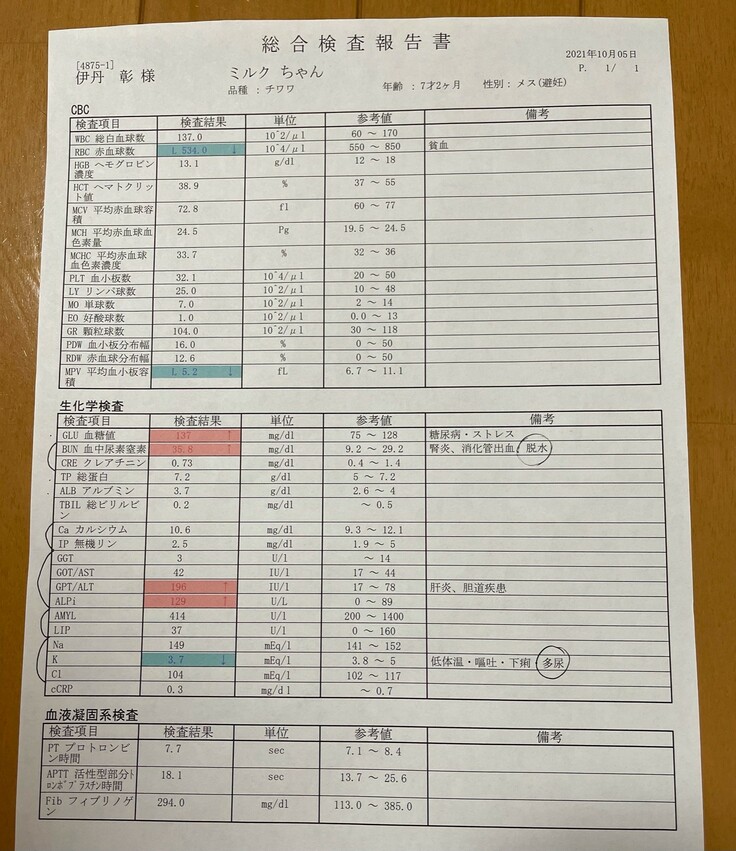 総合検査報告書
2021年10月05日
P. 1/ 1
[4875-1]
伊丹 彰 様
ミルク ちゃん
品種 : チワワ
年齢 : 7才2ヶ月
性別: メス(避妊)
CBC
検査項目 検査結果 単位 参考値 備考
WBC 総白血球数 137.0 10^2/μl 60 ～ 170
RBC 赤血球数 L 534.0 ↓ 10^4/μl 550 ～ 850 貧血
HGB ヘモグロビン濃度 13.1 g/dl 12 ～ 18
HCT ヘマトクリット値 38.9 % 37 ～ 55
MCV 平均赤血球容積 72.8 fl 60 ～ 77
MCH 平均赤血球血色素量 24.5 Pg 19.5 ～ 24.5
MCHC 平均赤血球血色素濃度 33.7 % 32 ～ 36
PLT 血小板数 32.1 10^4/μl 20 ～ 50
LY リンパ球数 25.0 10^2/μl 10 ～ 48
MO 単球数 7.0 10^2/μl 2 ～ 14
EO 好酸球数 1.0 10^2/μl 0.0 ～ 13
GR 顆粒球数 104.0 10^2/μl 30 ～ 118
PDW 血小板分布幅 16.0 % 0 ～ 50
RDW 赤血球分布幅 12.6 % 0 ～ 50
MPV 平均血小板容積 L 5.2 ↓ fL 6.7 ～ 11.1
生化学検査
検査項目 検査結果 単位 参考値 備考
GLU 血糖値 137 ↑ mg/dl 75 ～ 128 糖尿病・ストレス
BUN 血中尿素窒素 35.8 ↑ mg/dl 9.2 ～ 29.2 腎炎、消化管出血、脱水
CRE クレアチニン 0.73 mg/dl 0.4 ～ 1.4
TP 総蛋白 7.2 g/dl 5 ～ 7.2
ALB アルブミン 3.7 g/dl 2.6 ～ 4
TBIL 総ビリルビン 0.2 mg/dl ～ 0.5
Ca カルシウム 10.6 mg/dl 9.3 ～ 12.1
IP 無機リン 2.5 mg/dl 1.9 ～ 5
GGT 3 U/l ～ 14
GOT/AST 42 IU/l 17 ～ 44
GPT/ALT 196 ↑ IU/l 17 ～ 78 肝炎、胆道疾患
ALPi 129 ↑ U/L 0 ～ 89
AMYL 414 U/l 200 ～ 1400
LIP 37 U/l 0 ～ 160
Na 149 mEq/l 141 ～ 152
K 3.7 ↓ mEq/l 3.8 ～ 5 低体温・嘔吐・下痢・多尿
Cl 104 mEq/l 102 ～ 117
cCRP 0.3 mg/dl ～ 0.7
血液凝固系検査
検査項目 検査結果 単位 参考値 備考
PT プロトロンビン時間 7.7 sec 7.1 ～ 8.4
APTT 活性型部分ﾄﾛﾝﾎﾞﾌﾟﾗｽﾁﾝ時間 18.1 sec 13.7 ～ 25.6
Fib フィブリノゲン 294.0 mg/dl 113.0 ～ 385.0